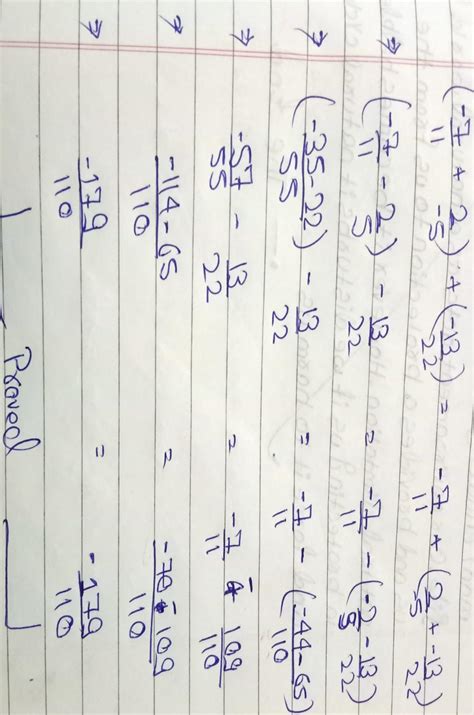 (-7/11 + 2/-5) + (-13/22) = -7/11 + (2/-5 + -13/22)
⇒ (-7/11 - 2/5) - 13/22 = -7/11 - (-2/5 - 13/22)
⇒ (-35-22/55) - 13/22 = -7/11 - (-44-65/110)
⇒ -57/55 - 13/22 = -7/11 - 109/110
⇒ -114-65/110 = -70-109/110
⇒ -179/110 = -179/110
Proved